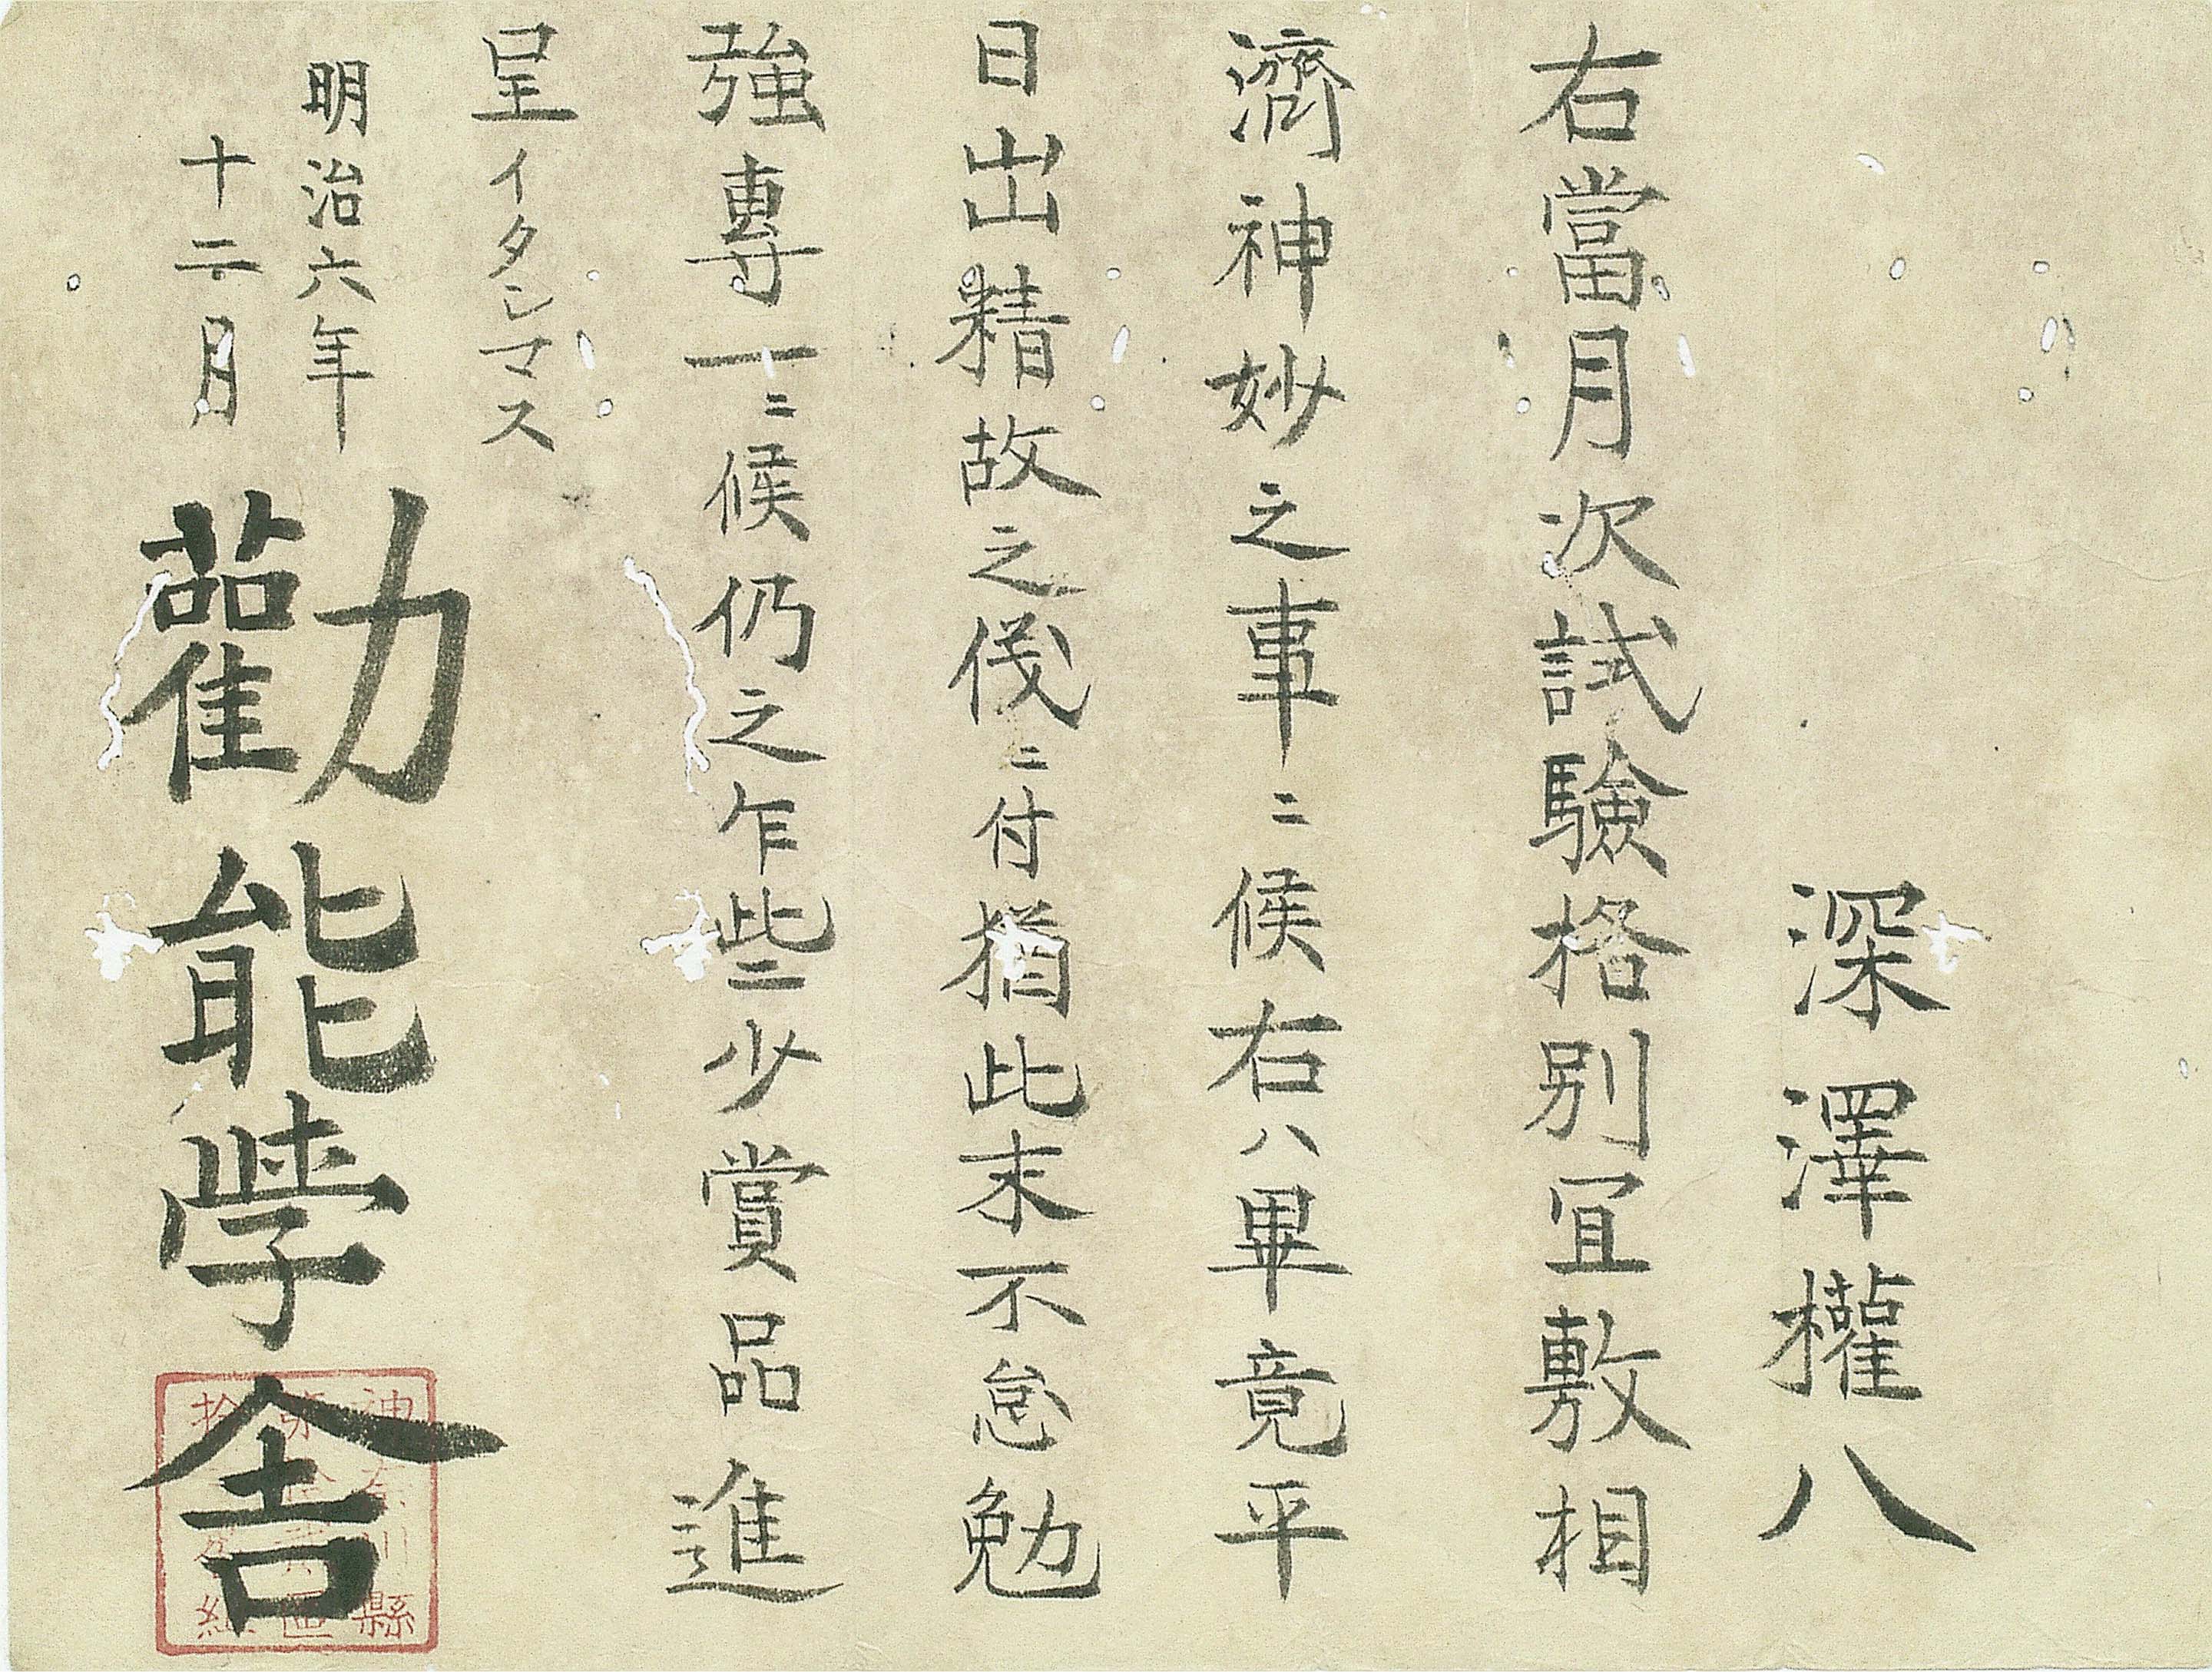 深澤權八
右當月次試驗格別冝敷相
濟神妙之事ニ候右ハ畢竟平
日出精故之儀ニ付猶此末不怠勉
強専一ニ候仍之乍些少賞品進
呈イタシマス
明治六年
十二月
勸能學舎
神奈川縣